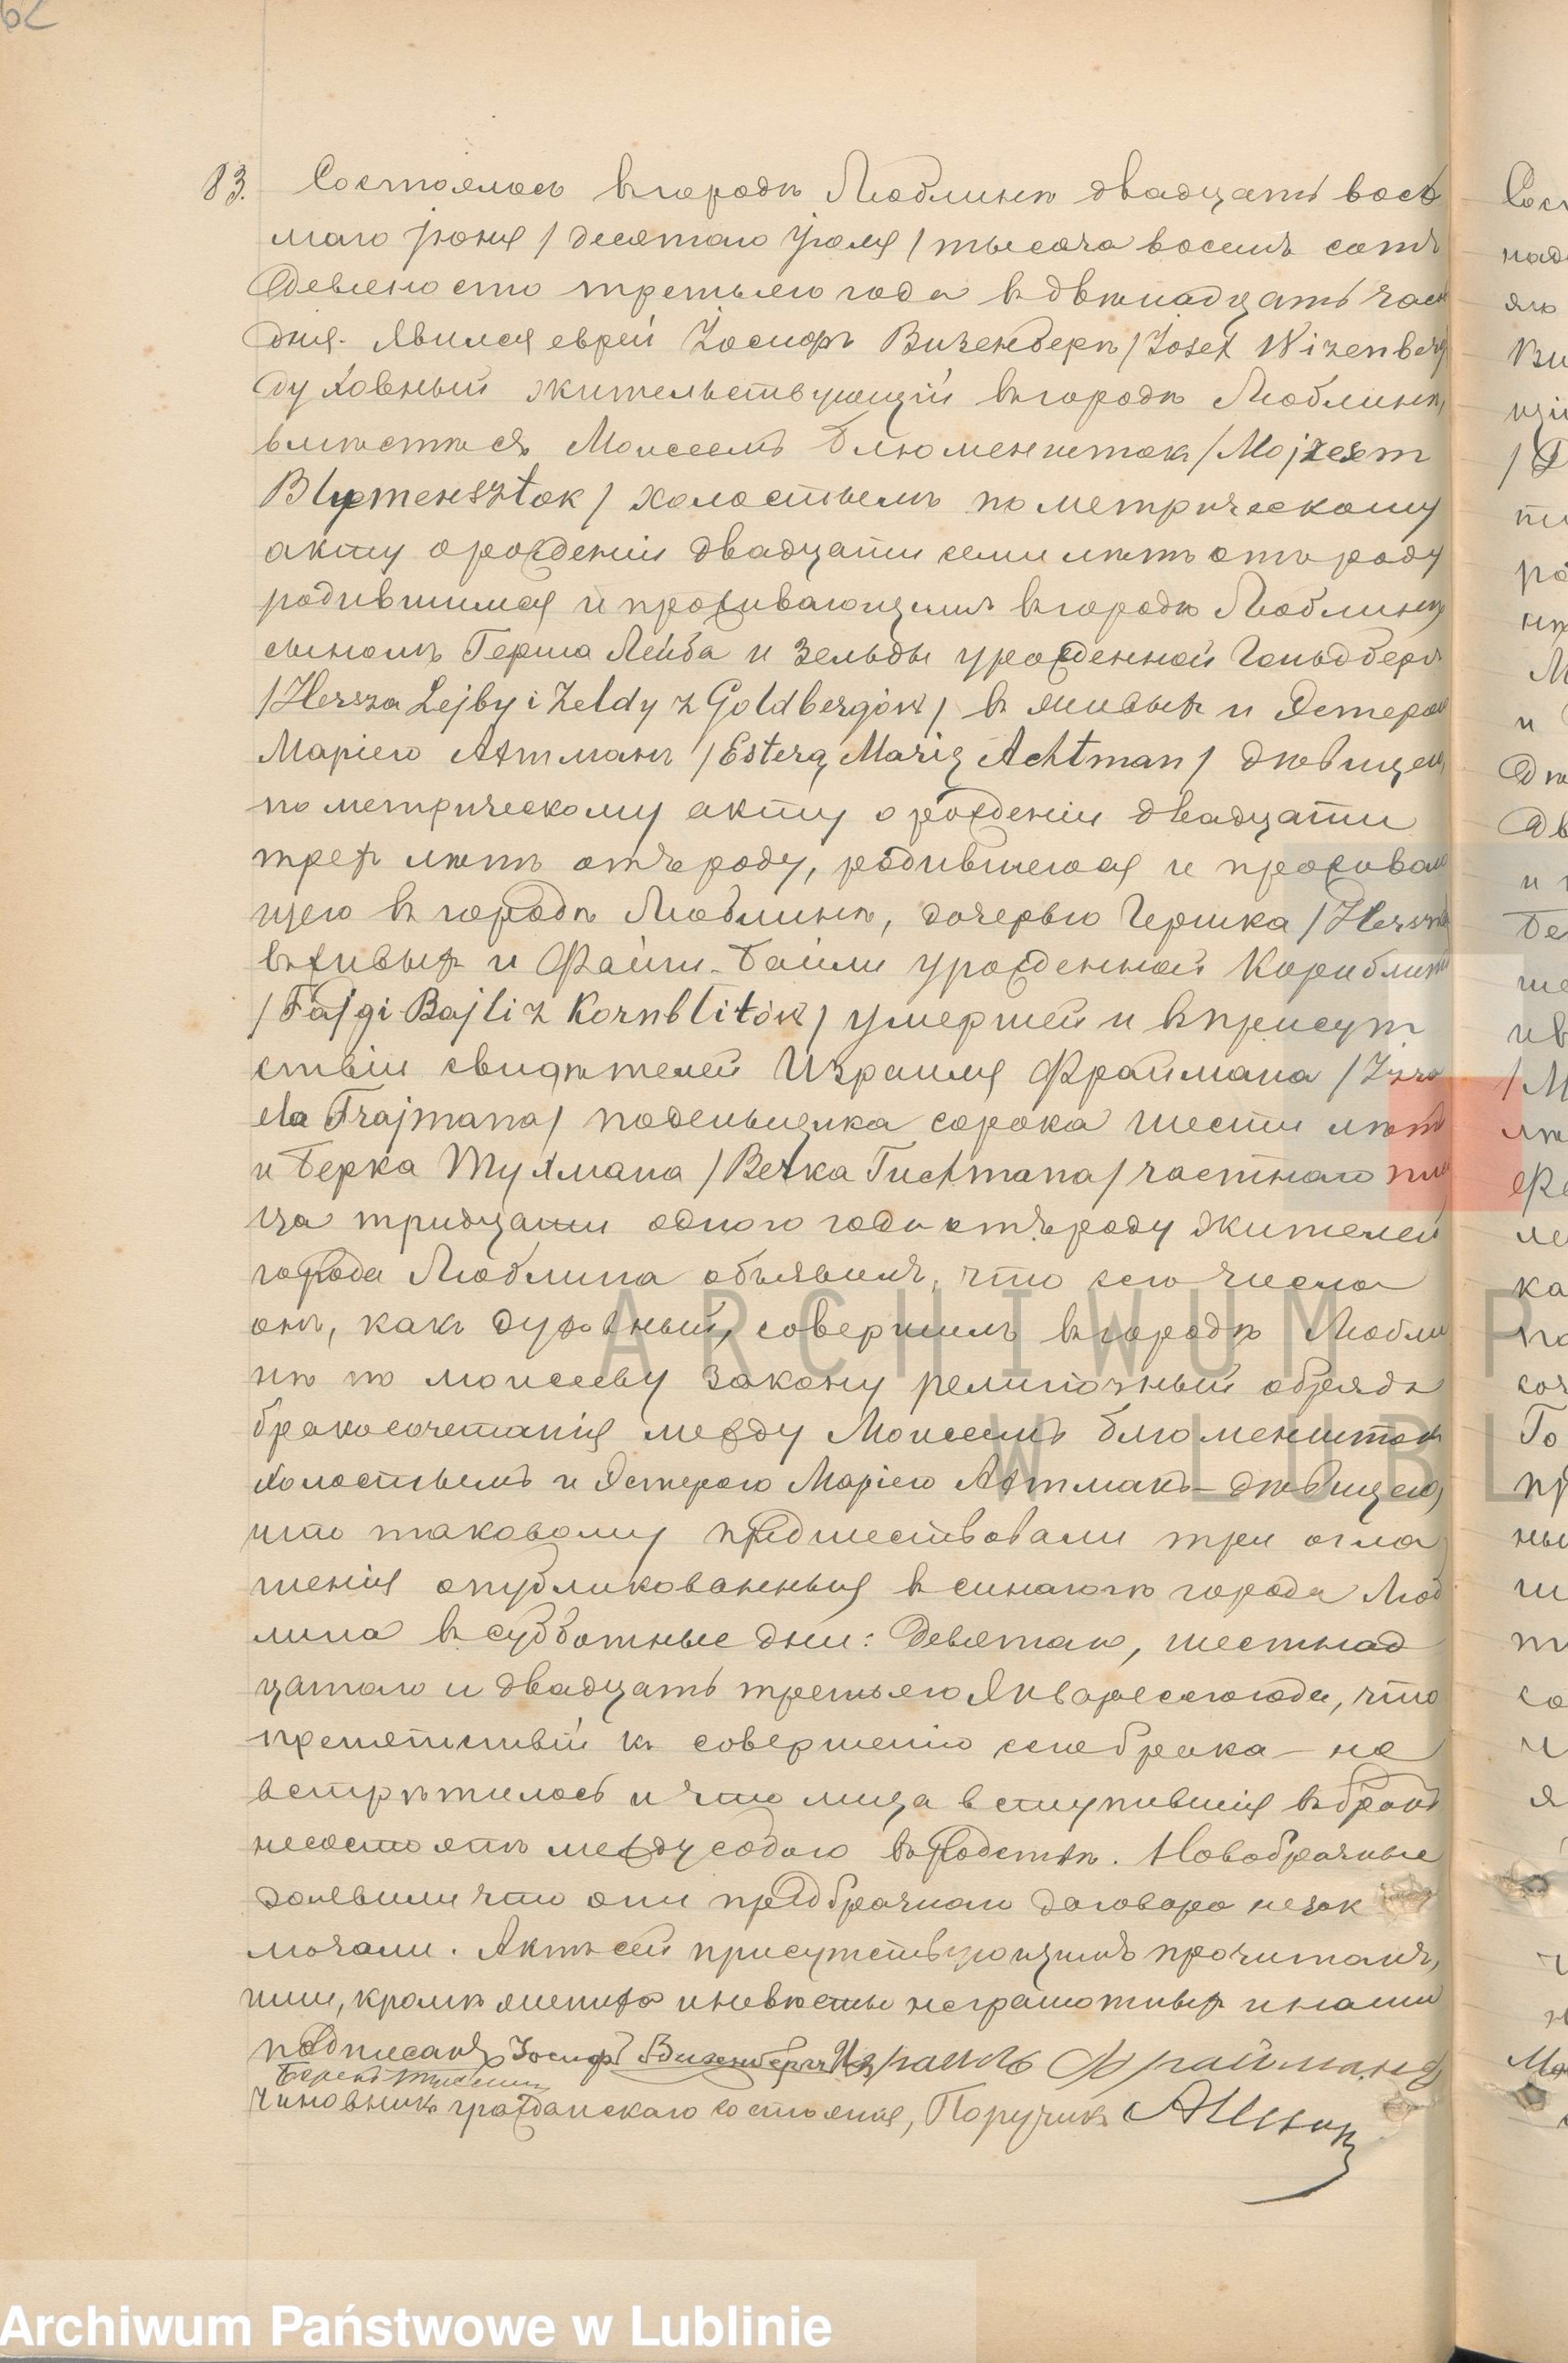 62
83. Состоялось въ городѣ Люблинѣ двадцать вось
маго Iюня / десятаго Iюля / тысяча восемь сотъ
девяносто третьяго года въ двѣнадцать час
дня. Явился еврей Iосифъ Визенбергъ / Josef Wizenberg
духовный жительствующiй въ городѣ Люблинѣ,
вмѣстѣ съ Моисеемъ Блюменштокъ / Mojżesem
Blumensztok / холостымъ по метрическому
акту о рожденiи двадцати семи лѣтъ отъ роду
родившимся и проживающимъ въ городѣ Люблинѣ
сыномъ Герша Лейба и Зельды урожденной Гольдберг
/ Hersza Lejby i Zeldy z Goldbergów / въ живых и Эстерою
Марiею Ахтманъ / Esterą Marią Achtman / дѣвицею
по метрическому акту о рожденiи двадцати
трех лѣтъ отъ роду, родившеюся и проживаю
щею въ городѣ Люблинѣ, дочерью Гершка / Herszka
въ живых и Файги-Байли урожденной Корнблит
/ Fajgi-Bajli z Kornblitów / умершей и въ присут
ствiи свидѣтелей Израиля Фраймана / Izra
ela Frajmana / поденьщика сорока шести лѣтъ
и Берка Тухмана / Berka Tuchmana / частнаго пис
ца тридцати одного года отъ роду жителей
города Люблина объявилъ, что сего числа
онъ, какъ духовный, совершилъ въ городѣ Любли
нѣ по моисееву закону религiозный обрядъ
бракосочетанiя между Моисеемъ Блюменшток
холостымъ и Эстерою Марiею Ахтманъ - дѣвицею,
что таковому предшествовали три огла
шенiя опубликованныя въ синагогѣ города Люб
лина въ субботные дни: девятаго, шестнад
цатаго и двадцать третьяго Января сего года, что
препятствiй къ совершенiю сего брака - не
встрѣтилось и что лица вступившiя въ бракъ
не состоятъ между собою въ родствѣ. Новобрачные
заявили что они предбрачнаго договора не зак
лючали. Актъ сей присутствующимъ прочитанъ,
ими, кромѣ жениха и невѣсты неграмотных и нами
подписанъ Iосифъ Визенбергъ Израиль Фрайманъ
Чиновникъ гражданскаго состоянiя, Поручикъ
ARCHIWUM P
W LUBL
Archiwum Państwowe w Lublinie